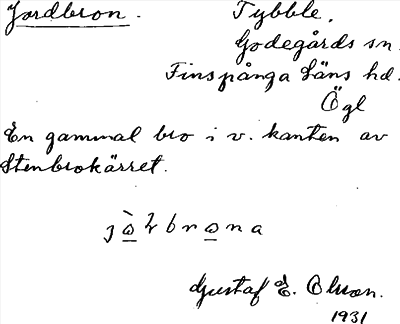 Jordbron. Tybble.
Godegårds sn.
Finspånga läns hd.
Ögl
En gammal bro i v. kanten av
Stenbrokärret.
Gustaf E. Olsson.
1931